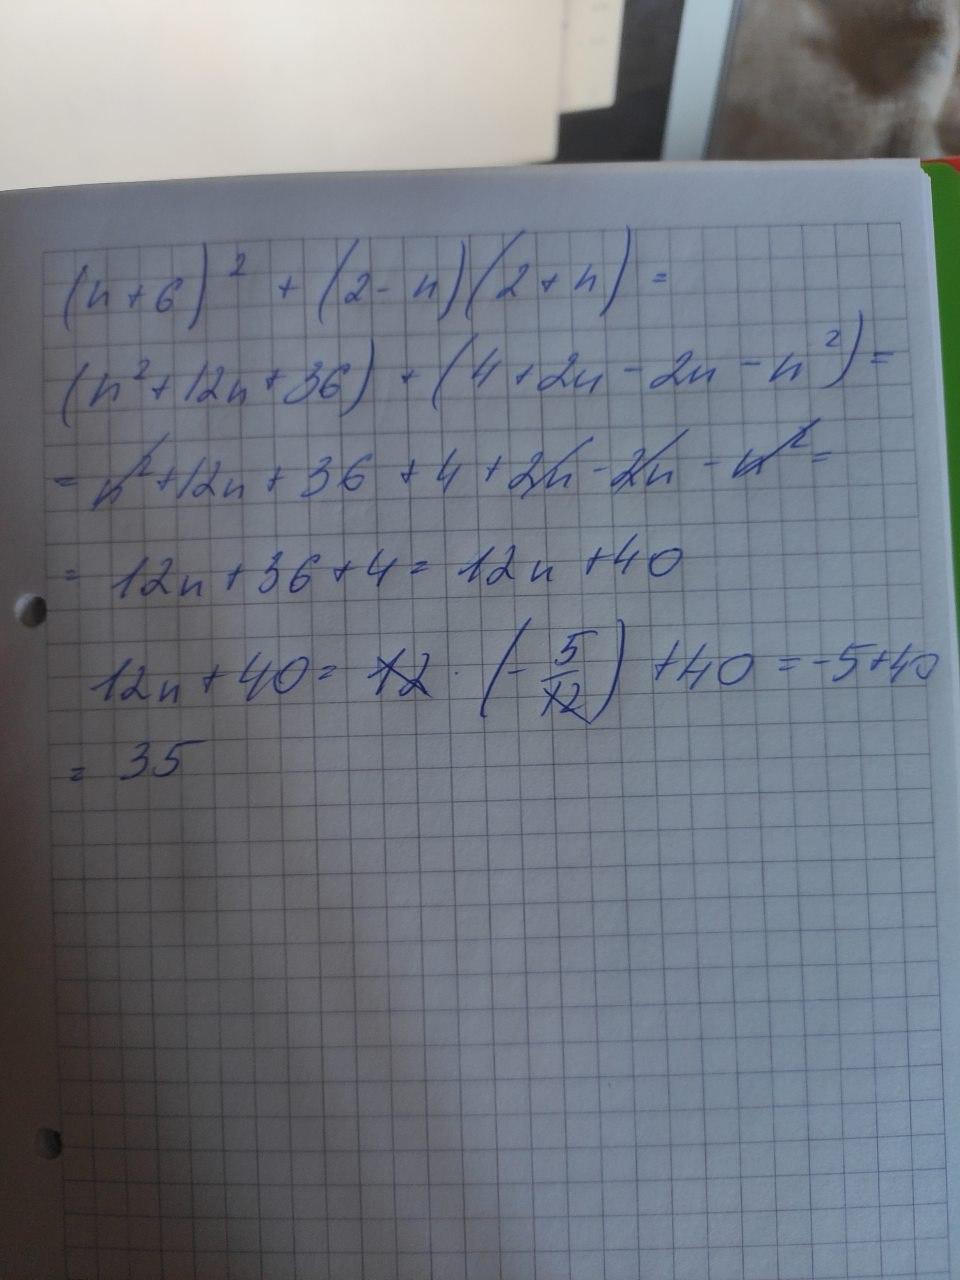 (n+6)² + (2-n)(2+n) =
(n²+12n+36) + (4+2n-2n-n²)=
= n²+12n+36+4+2n-2n-n²=
= 12n+36+4= 12n+40
12n+40= 12·(-5/12)+40=-5+40
= 35